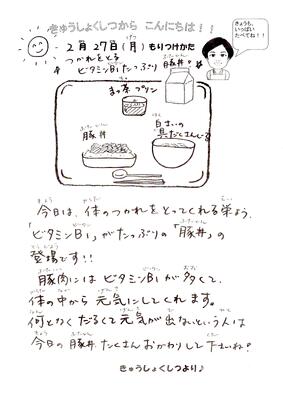 きゅうしょくしつから こんにちは!!
きょうも、
いっぱい
たべてね!!
2月27日(月)もりつけかた
つかれをとる
ビタミンB₁たっぷり 豚丼。
まっ茶プリン
豚丼
白玉の
具だくさんじる
今日は、体のつかれをとってくれる栄よう、
「ビタミンB₁」がたっぷりの「豚丼」の
登場です!!
豚肉には ビタミンB₁が多くて、
体の中から 元気にしてくれます。
何となく だるくて 元気が出ないという人は
今日の豚丼、たくさんおかわりして下さいね。
きゅうしょくしつより♪